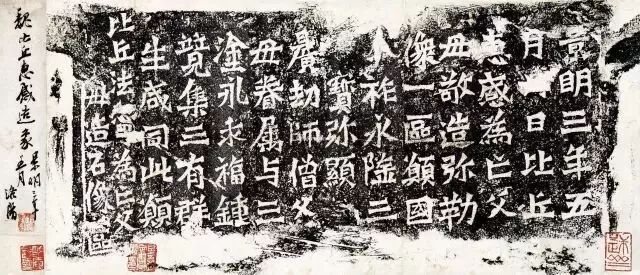 景明三年五
月日比丘
惠感為亡父
母敬造弥勒
像一區願國
祚永隆三
寶弥顯
曠劫師僧父
母眷属与三
塗永乖福鍾
竸集三有群
生咸同此願
比丘法為亡父
母造石像區
魏比丘惠感造象
景明三年
五月